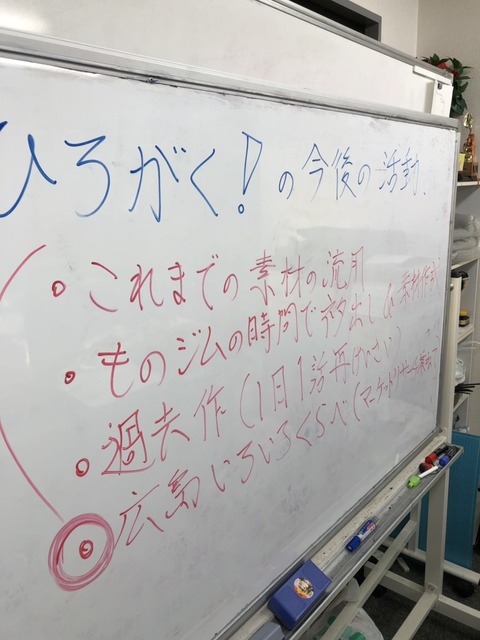 ひろがく!の今後の活動.
・これまでの素材の流用
・ものジムの時間でネタ出し&素材作成
・過去作(1日1話再けいさい)
・広島いろいろくらべ(マーケットリサーチ